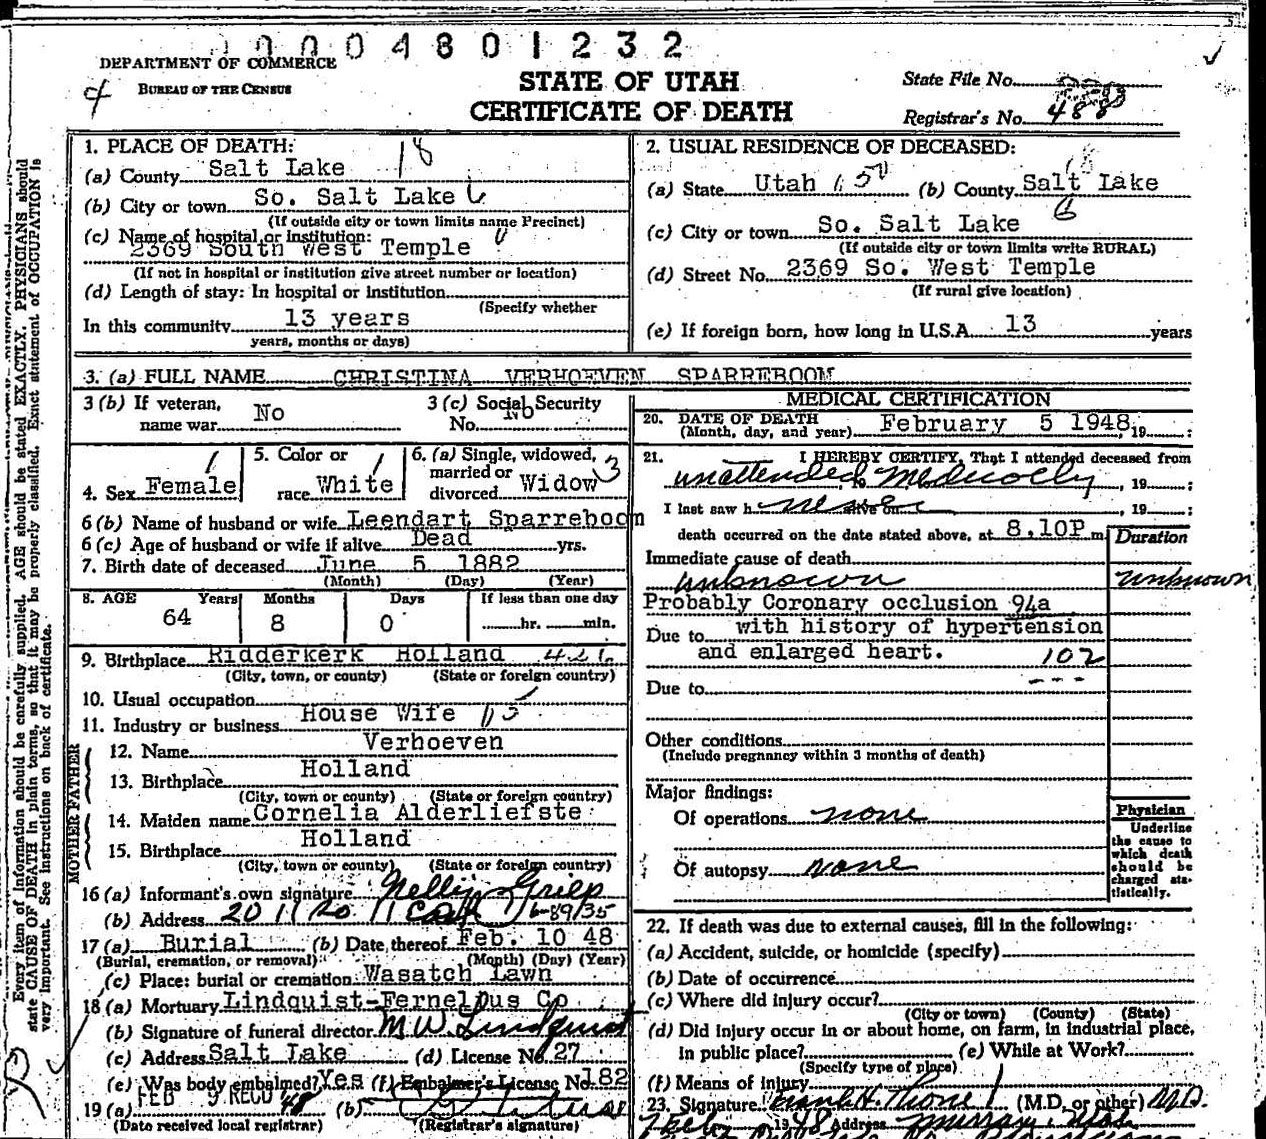 0004801232
DEPARTMENT OF COMMERCE
BUREAU OF THE CENSUS
STATE OF UTAH
CERTIFICATE OF DEATH
State File No.
Registrar's No. 488
1. PLACE OF DEATH: 18
(a) County Salt Lake
(b) City or town So. Salt Lake
(If outside city or town limits name Precinct)
(c) Name of hospital or institution:
2369 South West Temple
(If not in hospital or institution give street number or location)
(d) Length of stay: In hospital or institution
(Specify whether
In this community 13 years
years, months or days)
2. USUAL RESIDENCE OF DECEASED:
(a) State Utah (b) County Salt Lake
(c) City or town So. Salt Lake 6
(If outside city or town limits write RURAL)
(d) Street No. 2369 So. West Temple
(If rural give location)
(e) If foreign born, how long in U.S.A. 13 years
3. (a) FULL NAME CHRISTINA VERHOEVEN SPARREBOOM
3 (b) If veteran, name war No
3 (c) Social Security No. No
4. Sex Female
5. Color or race White
6. (a) Single, widowed, married or divorced Widow 3
6 (b) Name of husband or wife Leendart Sparreboom
6 (c) Age of husband or wife if alive Dead yrs.
7. Birth date of deceased June 5 1882
(Month) (Day) (Year)
8. AGE Years Months Days If less than one day
64 8 0 hr. min.
9. Birthplace Ridderkerk Holland
(City, town, or county) (State or foreign country)
10. Usual occupation
House Wife
11. Industry or business
FATHER
12. Name Verhoeven
13. Birthplace Holland
(City, town or county) (State or foreign country)
MOTHER
14. Maiden name Cornelia Alderliefste
15. Birthplace Holland
(City, town or county) (State or foreign country)
16 (a) Informant's own signature Nelly Griep
(b) Address
17 (a) Burial (b) Date thereof Feb. 10 48
(Burial, cremation, or removal) (Month) (Day) (Year)
(c) Place: burial or cremation Wasatch Lawn
18 (a) Mortuary Lindquist-Fernelpus Co
(b) Signature of funeral director M W Lindquist
(c) Address Salt Lake (d) License No. 27
(e) Was body embalmed? Yes (f) Embalmer's License No. 182
19 (a) FEB 9 RECD 48 (b)
(Date received local registrar) (Registrar's signature)
MEDICAL CERTIFICATION
20. DATE OF DEATH
(Month, day, and year) February 5 1948, 19 :
21. I HEREBY CERTIFY, That I attended deceased from
unattended Medically, 19 ;
I last saw h never alive on , 19 ;
death occurred on the date stated above, at 8.10P m
Duration
Immediate cause of death
unknown unknown
Probably Coronary occlusion 94a
Due to with history of hypertension
and enlarged heart. 102
Due to
Other conditions
(Include pregnancy within 3 months of death)
Major findings:
Of operations none
Of autopsy none
Physician
Underline the cause to which death should be charged statistically.
22. If death was due to external causes, fill in the following:
(a) Accident, suicide, or homicide (specify)
(b) Date of occurrence
(c) Where did injury occur?
(City or town) (County) (State)
(d) Did injury occur in or about home, on farm, in industrial place,
in public place? (e) While at Work?
(Specify type of place)
(f) Means of injury
23. Signature (M.D. or other) M.D.
1948 Address Murray, Utah
Every item of information should be carefully supplied. AGE should be stated EXACTLY. PHYSICIANS should
state CAUSE OF DEATH in plain terms, so that it may be properly classified. Exact statement of OCCUPATION is
very important. See instructions on back of certificate.